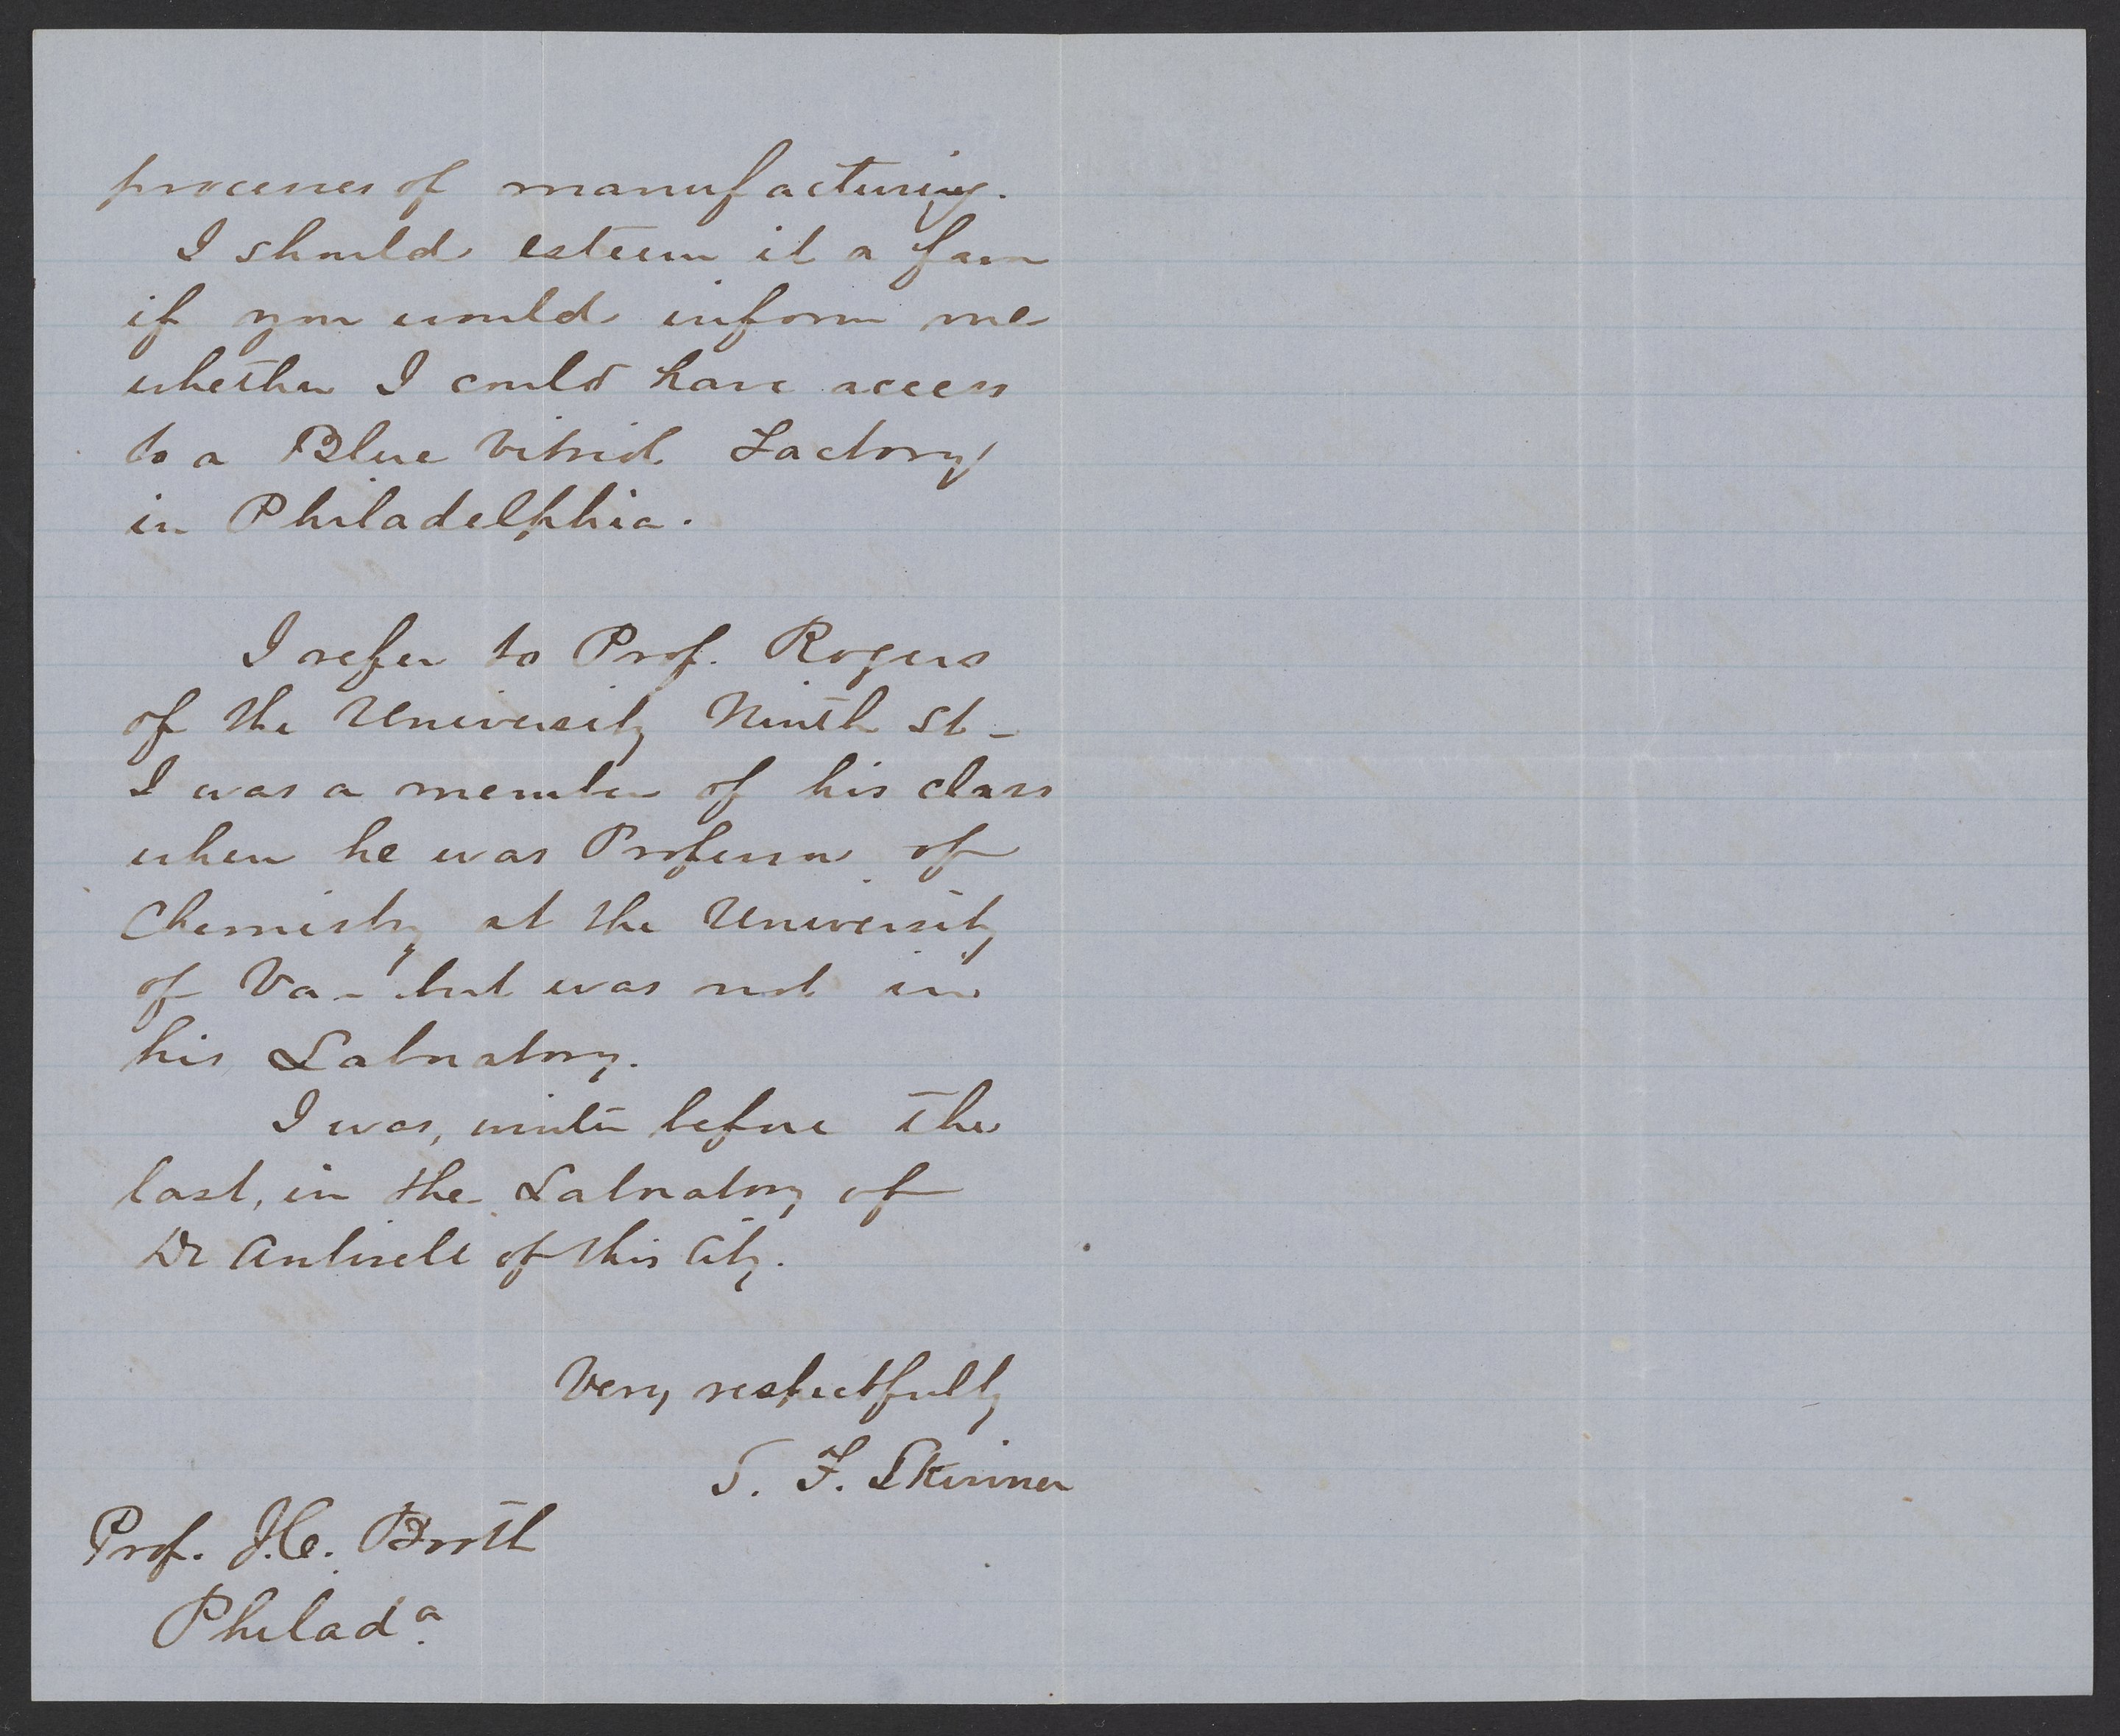 processes of manufacturing.
I should esteem it a favor
if you would inform me
whether I could have access
to a Blue Vitriol Factory
in Philadelphia.
I refer to Prof. Rogers
of the University Ninth St -
I was a member of his class
when he was Professor of
Chemistry at the University
of Va - but was not in
his Laboratory.
I was, winter before the
last, in the Laboratory of
Dr Antisell of this City.
Very respectfully
T. F. Skinner
Prof. J.C. Booth
Philada.